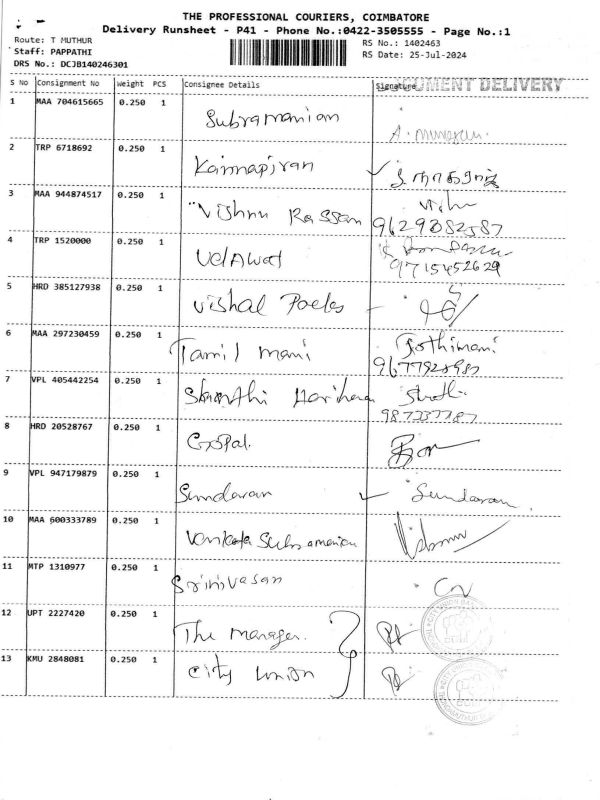 THE PROFESSIONAL COURIERS, COIMBATORE
Delivery Runsheet - P41 - Phone No.:0422-3505555 - Page No.:1
Route: T MUTHUR
RS No.: 1402463
Staff: PAPPATHI
RS Date: 25-Jul-2024
DRS No.: DCJB140246301
S No Consignment No Weight PCS Consignee Details Signature
CUMENT DELIVERY
1 MAA 704615665 0.250 1 Subramanian
2 TRP 6718692 0.250 1
3 MAA 944874517 0.250 1 Vishnu Rassan
9629382587
4 TRP 1520000 0.250 1 VelAwat
9715452629
5 HRD 385127938 0.250 1 Vishal
6 MAA 297230459 0.250 1 Tamil mani Jothimani
7 VPL 405442254 0.250 1
8 HRD 20528767 0.250 1 Gopal.
9 VPL 947179879 0.250 1 Sundaran ✓ Sundaran.
10 MAA 600333789 0.250 1 Venkata Subramanian
11 MTP 1310977 0.250 1 Srinivasan
12 UPT 2227420 0.250 1 The manager.
13 KMU 2848081 0.250 1 City union